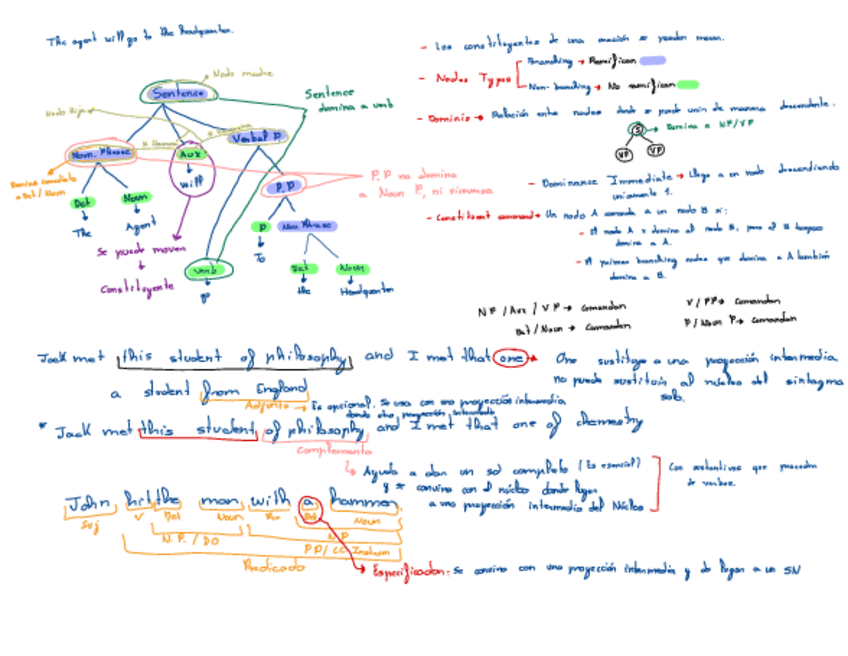 The agent will go to the headquarter.
Nodo madre
Sentence
Sentence
domina a verb
Nodo Hijo
Nom. Phrase
Aux
Verbal P
will
P.P
Domina inmediato
a Det / Noun
Det
Noun
The
Agent
Se puede mover
Constituyente
P
Nou Phrase
To
Verb
go
Det
Noun
the
Headquarter
P.P no domina
a Noun P, ni viceversa
- Los constituyentes de una oración se pueden mover.
- Nodes Types
Branching → Ramifican
Non-branching → No ramifican
- Dominio → Relación entre nodos donde se puede unir de manera descendente.
S
Domina a NP/VP
VP
- Dominance Immediate → Llega a un nodo descendiendo
unicamente 1.
- Constituent command → Un nodo A comanda a un nodo B si:
- El nodo A no domina al nodo B, pero el B tampoco
domina a A.
- El primer branching nodes que domina a A también
domina a B.
NP / Aux / VP → Comandan
V / PP → Comandan
Det / Noun → Comandan
P / Noun P → Comandan
Jack met this student of philosophy and I met that one → One sustituye a una proyección intermedia
no puede sustituir al núcleo del sintagma
solo.
a student from England
Adjunto → Es opcional. Se usa con una proyección intermedia
donde otra proyección intermedia
* Jack met this student of philosophy and I met that one of chemestry
Complemento
Ayuda a dar un sol completo (Es esencial)
y se convina con el núcleo donde lugar
a una proyección intermedia del Núcleo
Con sustantivos que proceden
de verbos.
John hit the man with a hammer
Suj
V
Det
Noun
Det
Noun
N.P. / DO
N.P
PP/ CC Instrum
Predicado
Especificador: Se convina con una proyección intermedia y da lugar a un SN